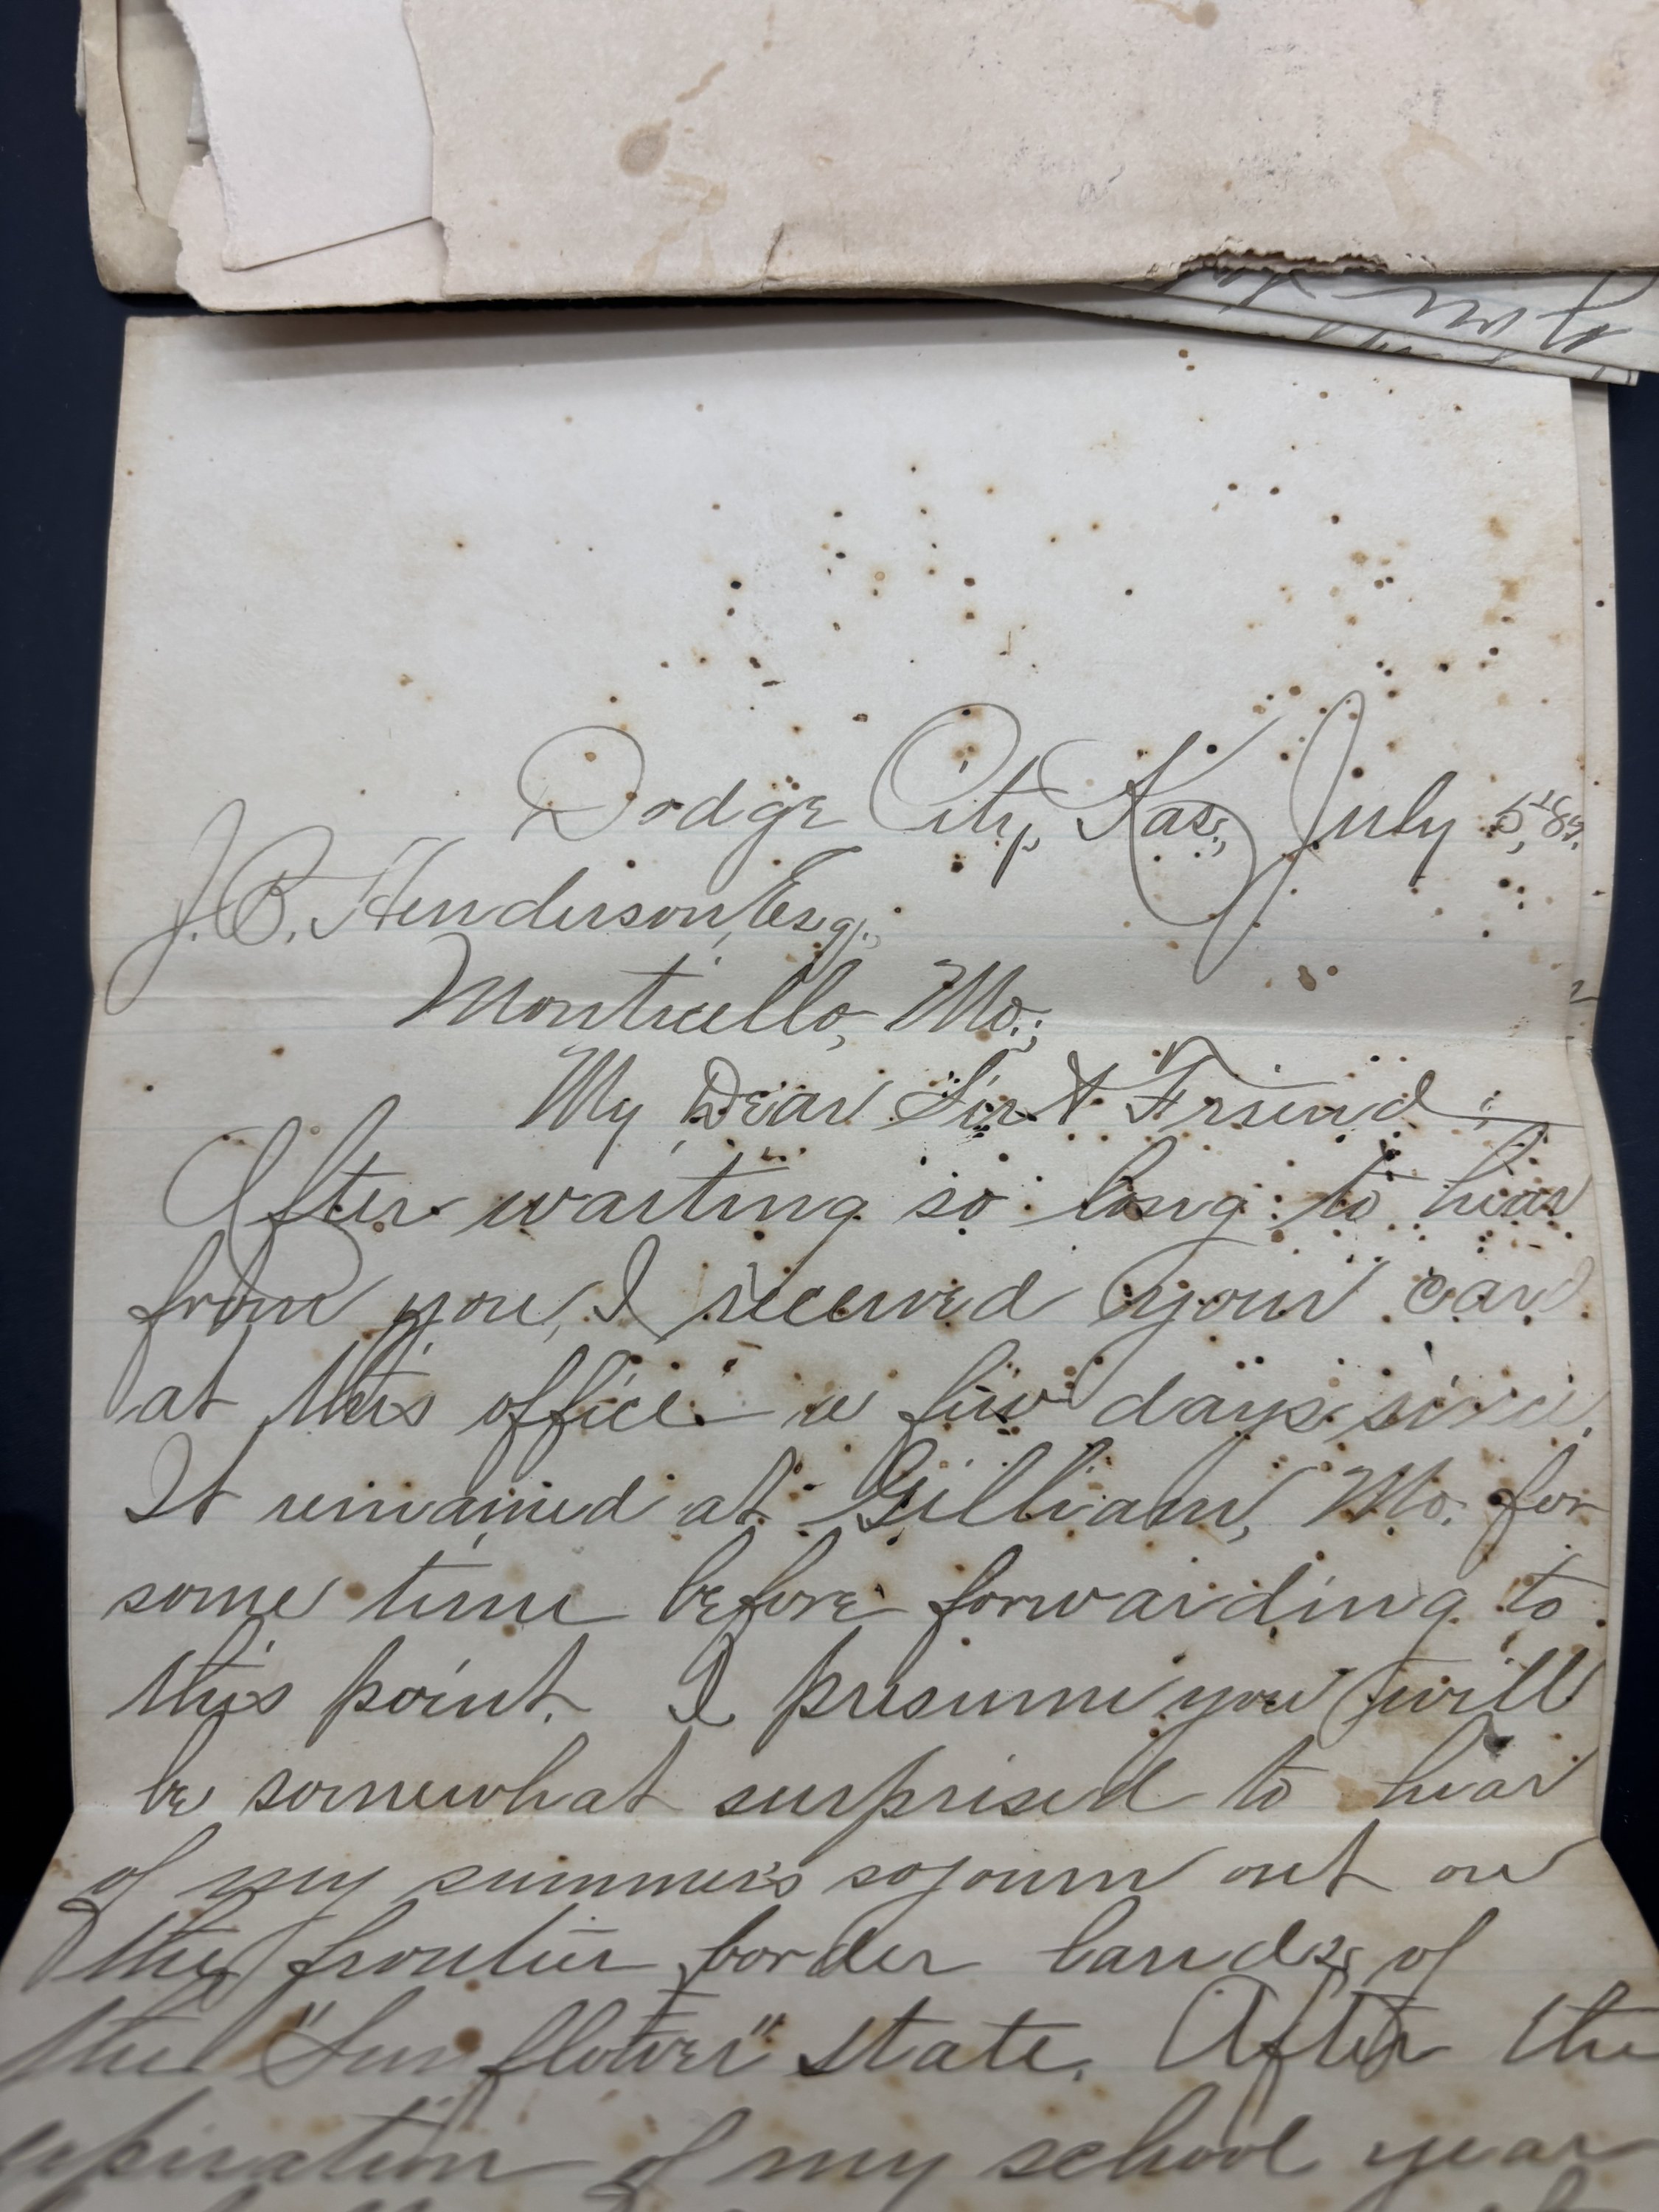 Dodge City, Kas., July 5,
J. B. Henderson, Esq.,
Monticello, Mo.;
My Dear Sir & Friend;
After waiting so long to hear
from you, I received your card
at this office a few days since.
It remained at Gilliam, Mo. for
some time before forwarding to
this point. I presume you will
be somewhat surprised to hear
of my summer's sojourn out on
the frontier border lands of
the "Sun flower" state. After the
expiration of my school year